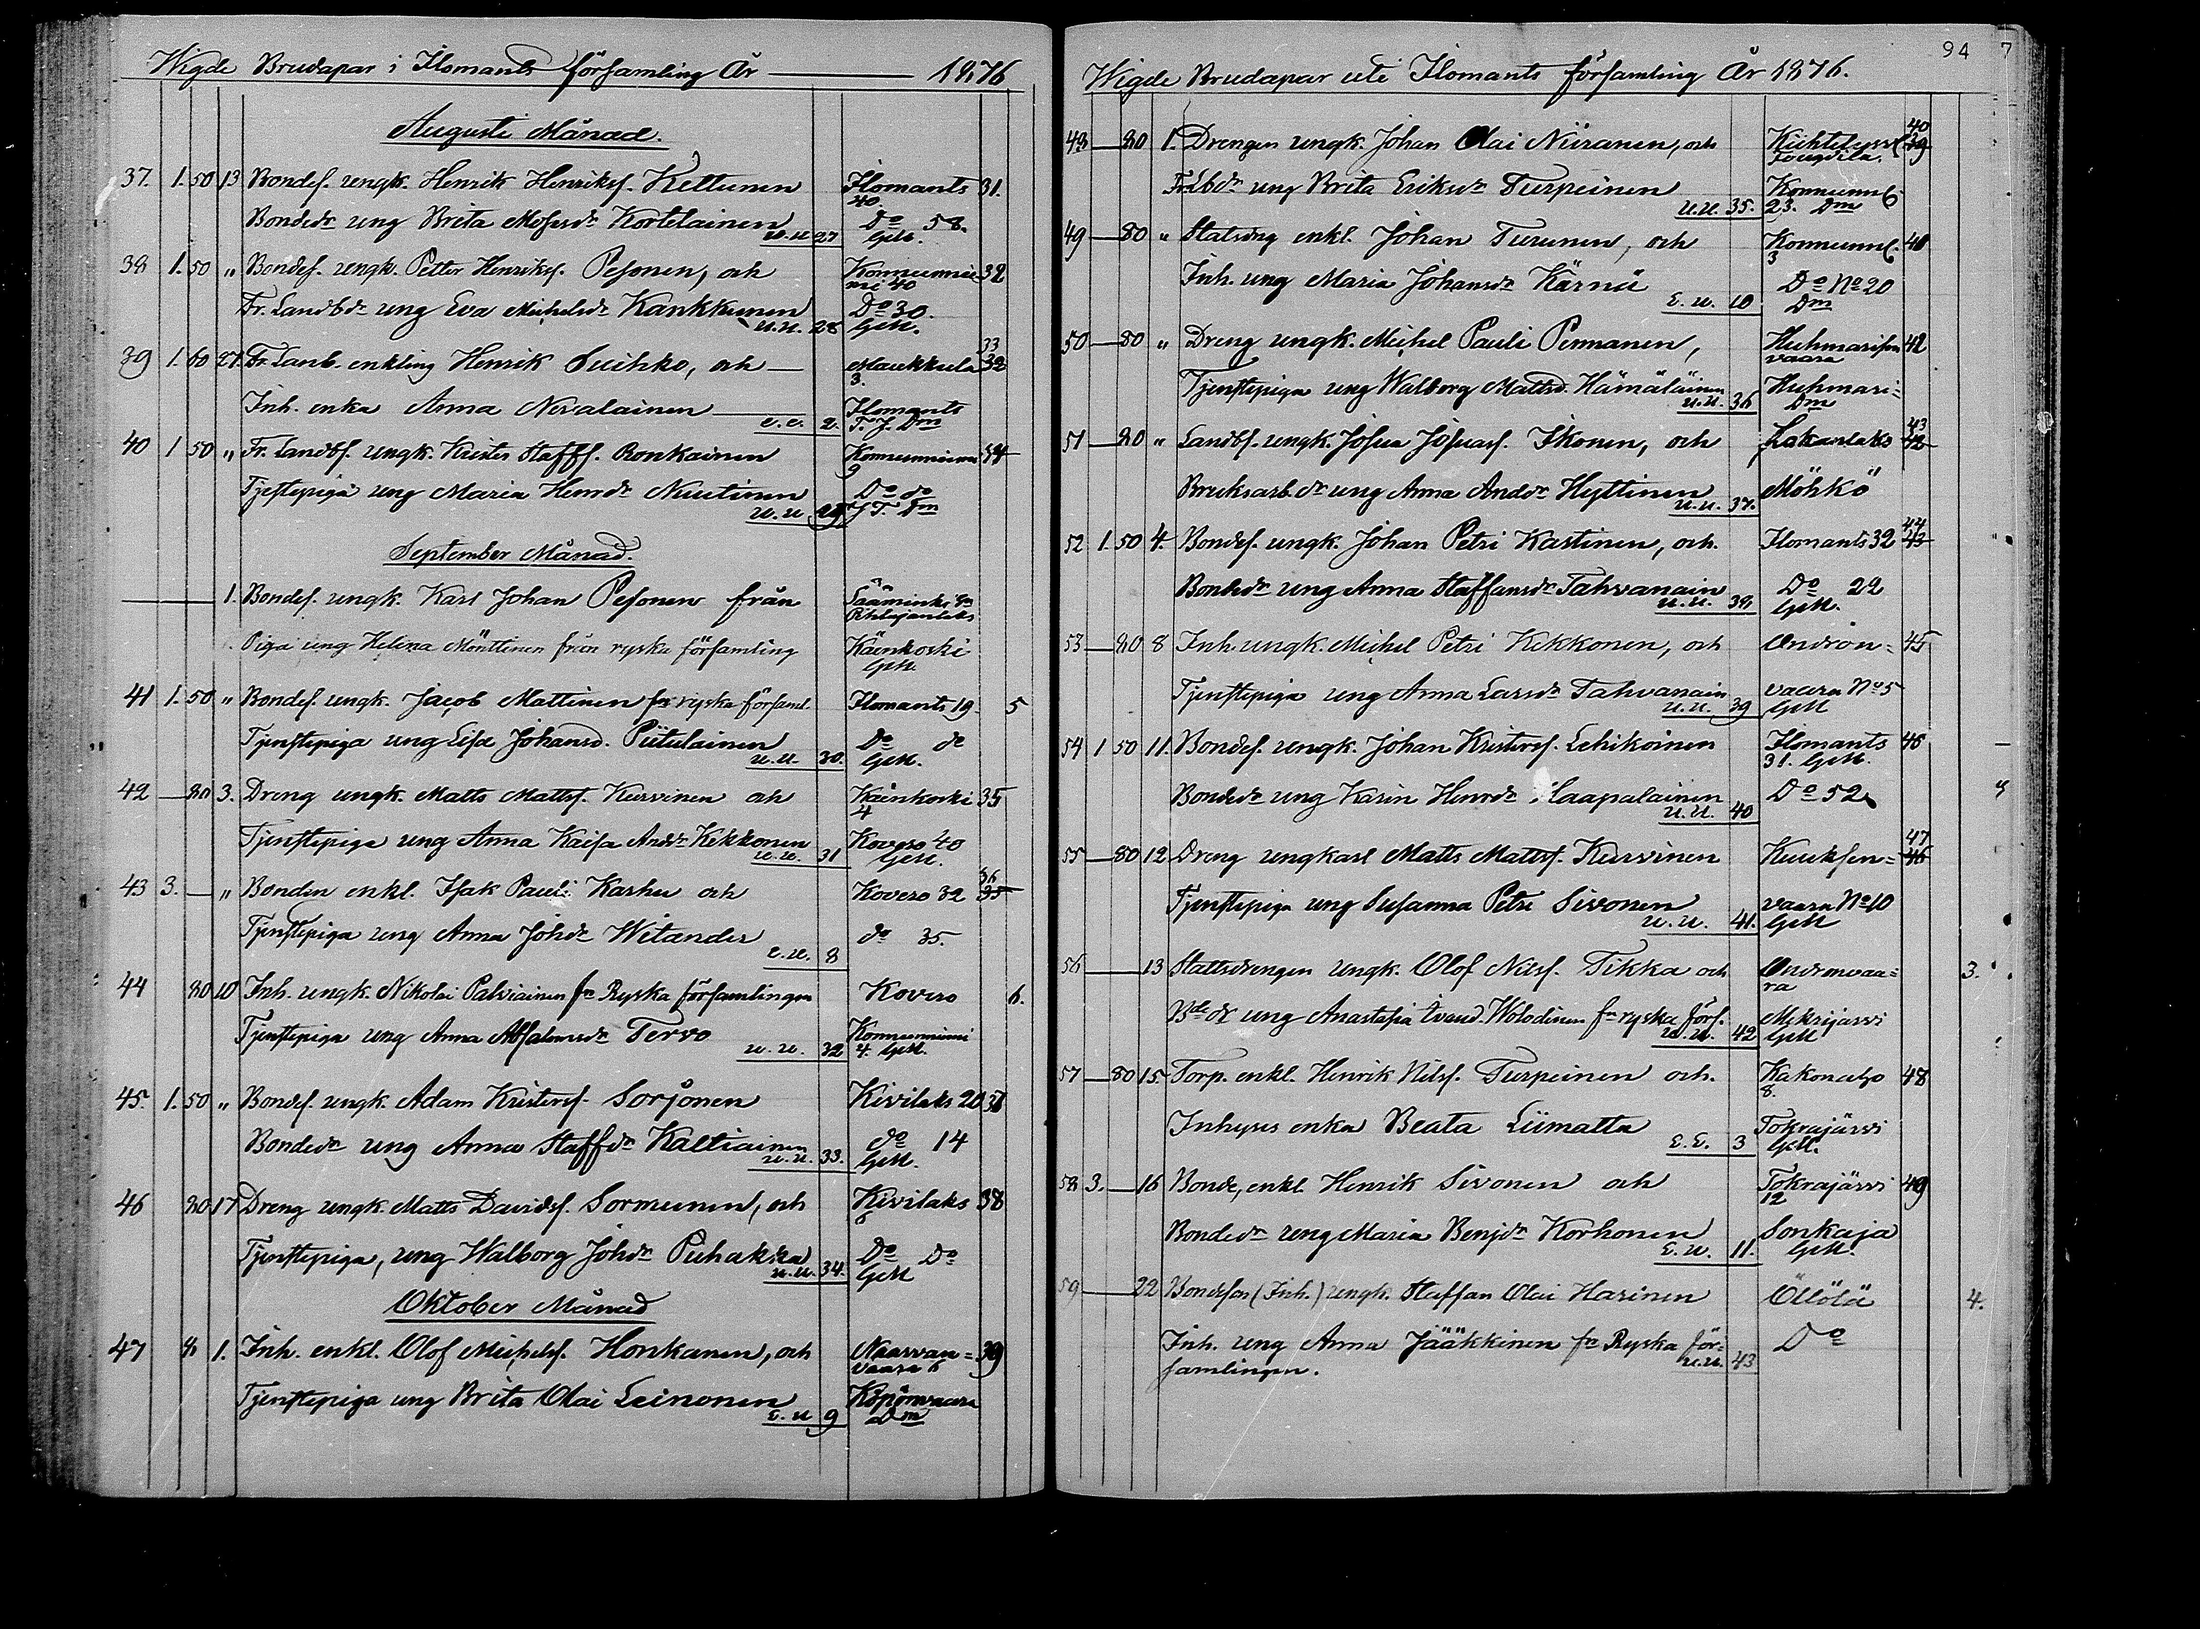 Wigde Brudapar i Ilomants församling År 1876
Augusti Månad.
37. 1. 50 13 Bondes. ungk. Henrik Henriks. Kettunen Ilomants 31.
40.
Bondedr ung Brita Mosesdr Kortelainen Do 58.
u.u 27 GM.
38 1. 50 „ Bondes. ungk. Petter Henriks. Pesonen, och Konnunnie 32
mi 40
Fr. Landbdr ung Eva Michelsdr Kankkunen Do 30.
u.u. 28 GM.
39 1. 60 27. Fr. Lanb. enkling Henrik Suihko, och Maukkula 33 32
3.
Inh. enka Anna Nevalainen Ilomants
e.e. 2. F. J. Dm
40 1 50 „ Fr. Landbs. ungk. Krister Staffs. Ronkainen Konnunniemi 34
9
Tjenstepiga ung Maria Henrdr Nuutinen Do do
u.u 29 J F. Dm
September Månad.
1. Bondes. ungk. Karl Johan Pesonen från Sääminki fn
Pihlajanlaks
Piga ung Helena Mönttinen från ryska församling Käenkoski
GM.
41 1. 50 „ Bondes. ungk. Jacob Mattinen fr ryska församl. Ilomants 19 5
Tjenstepiga ung Lisa Johansd. Piitulainen Do do
u.u. 30. GM.
42 80 3. Dreng ungk. Matts Mattss. Kurvinen och Käenkoski 35
4
Tjenstepiga ung Anna Kaisa Anddr Kekkonen Kovero 40
u.u. 31 GM.
43 3. „ Bonden enkl. Isak Pauli Karhu och Kovero 32 36 35
Tjenstepiga ung Anna Johdr Witander do 35.
e.u. 8
44 80 10 Inh. ungk. Nikolai Palviainen fr Ryska församlingen Kovero 6.
Tjenstepiga ung Anna Absalonsdr Tervo Konnunniemi
u.u. 32 4. GM.
45. 1. 50 „ Bondes. ungk. Adam Kristers. Sorjonen Kivilaks 20 37
Bondedr ung Anna Staffdr Kaltiainen do 14
u.u. 33. GM.
46 80 17 Dreng ungk. Matts Davids. Sormunen, och Kivilaks 38
6
Tjenstepiga, ung Walborg Johdr Puhakka Do Do
u.u. 34. GM
Oktober Månad
47 8 1. Inh. enkl. Olof Michels. Honkanen, och Naarvan= 39
vaara 6
Tjenstepiga ung Brita Olai Leinonen Köpönvaara
e.u 9 Dm
94 7
Wigde Brudapar uti Ilomants församling År 1876.
48 80 1. Drengen ungk. Johan Olai Niiranen, och Kiihtelysv. 40 39
Fr Lbdr ung Brita Eriksdr Turpeinen Konnunn
u.u. 35. 23. Dm
49 80 „ Statsdng enkl. Johan Turunen, och Konnunn 41
3
Inh. ung Maria Johansdr Kärnä Do No 20
e.u. 10 Dm
50 80 „ Dreng ungk. Michel Pauli Pennanen, Huhmarisen 42
vaara
Tjenstepiga ung Walborg Mattsd. Hämäläinen Huhmari=
u.u. 36 Dm
51 80 „ Landbs. ungk. Josua Josuas. Ikonen, och Lakanlaks 43 42
Bruksarb.dr ung Anna Anddr Hyttinen Möhkö
u.u. 37.
52 1. 50 4. Bondes. ungk. Johan Petri Kastinen, och. Ilomants 32 44 43
Bondedr ung Anna Staffansdr Tahvanain Do 22
u.u. 38 GM.
53 80 8 Inh. ungk. Michel Petri Kekkonen, och Ondron= 45
Tjenstepiga ung Anna Larsdr Tahvanain vaara No 5
u.u. 39 GM
54 1 50 11. Bondes. ungk. Johan Kristers. Lehikoinen Ilomants 46
31. GM.
Bondedr ung Karin Henrdr Haapalainen Do 52.
u.u. 40
55 80 12 Dreng ungkarl Matts Mattss. Kurvinen Kuuksen= 47 46
Tjenstepiga ung Susanna Petri Sivonen vaara No 10
u.u. 41. GM
56 13 Stattsdrengen ungk. Olof Nils. Tikka och Ondronvaa= 3.
ra
Bdedr ung Anastasia Ivansd. Wolodinen fr ryska förs. Mekrijärvi
u.u. 42 GM
57 80 15. Torp. enkl. Henrik Nilss. Turpeinen och. Kakonaho 48
8.
Inhyses enka Beata Liimatta Tokrajärvi
E.E. 3 GM.
58 3. 16 Bonde, enkl. Henrik Sivonen och Tokrajärvi 49
12
Bondedr ung Maria Benjdr Korhonen Sonkaja
E.u. 11. GM.
59 22 Bondeson (Inh.) ungk. Staffan Olai Harinen Öllölä 4.
Inh. ung Anna Jääkkinen fr Ryska för= Do
u.u. 43
samlingen.